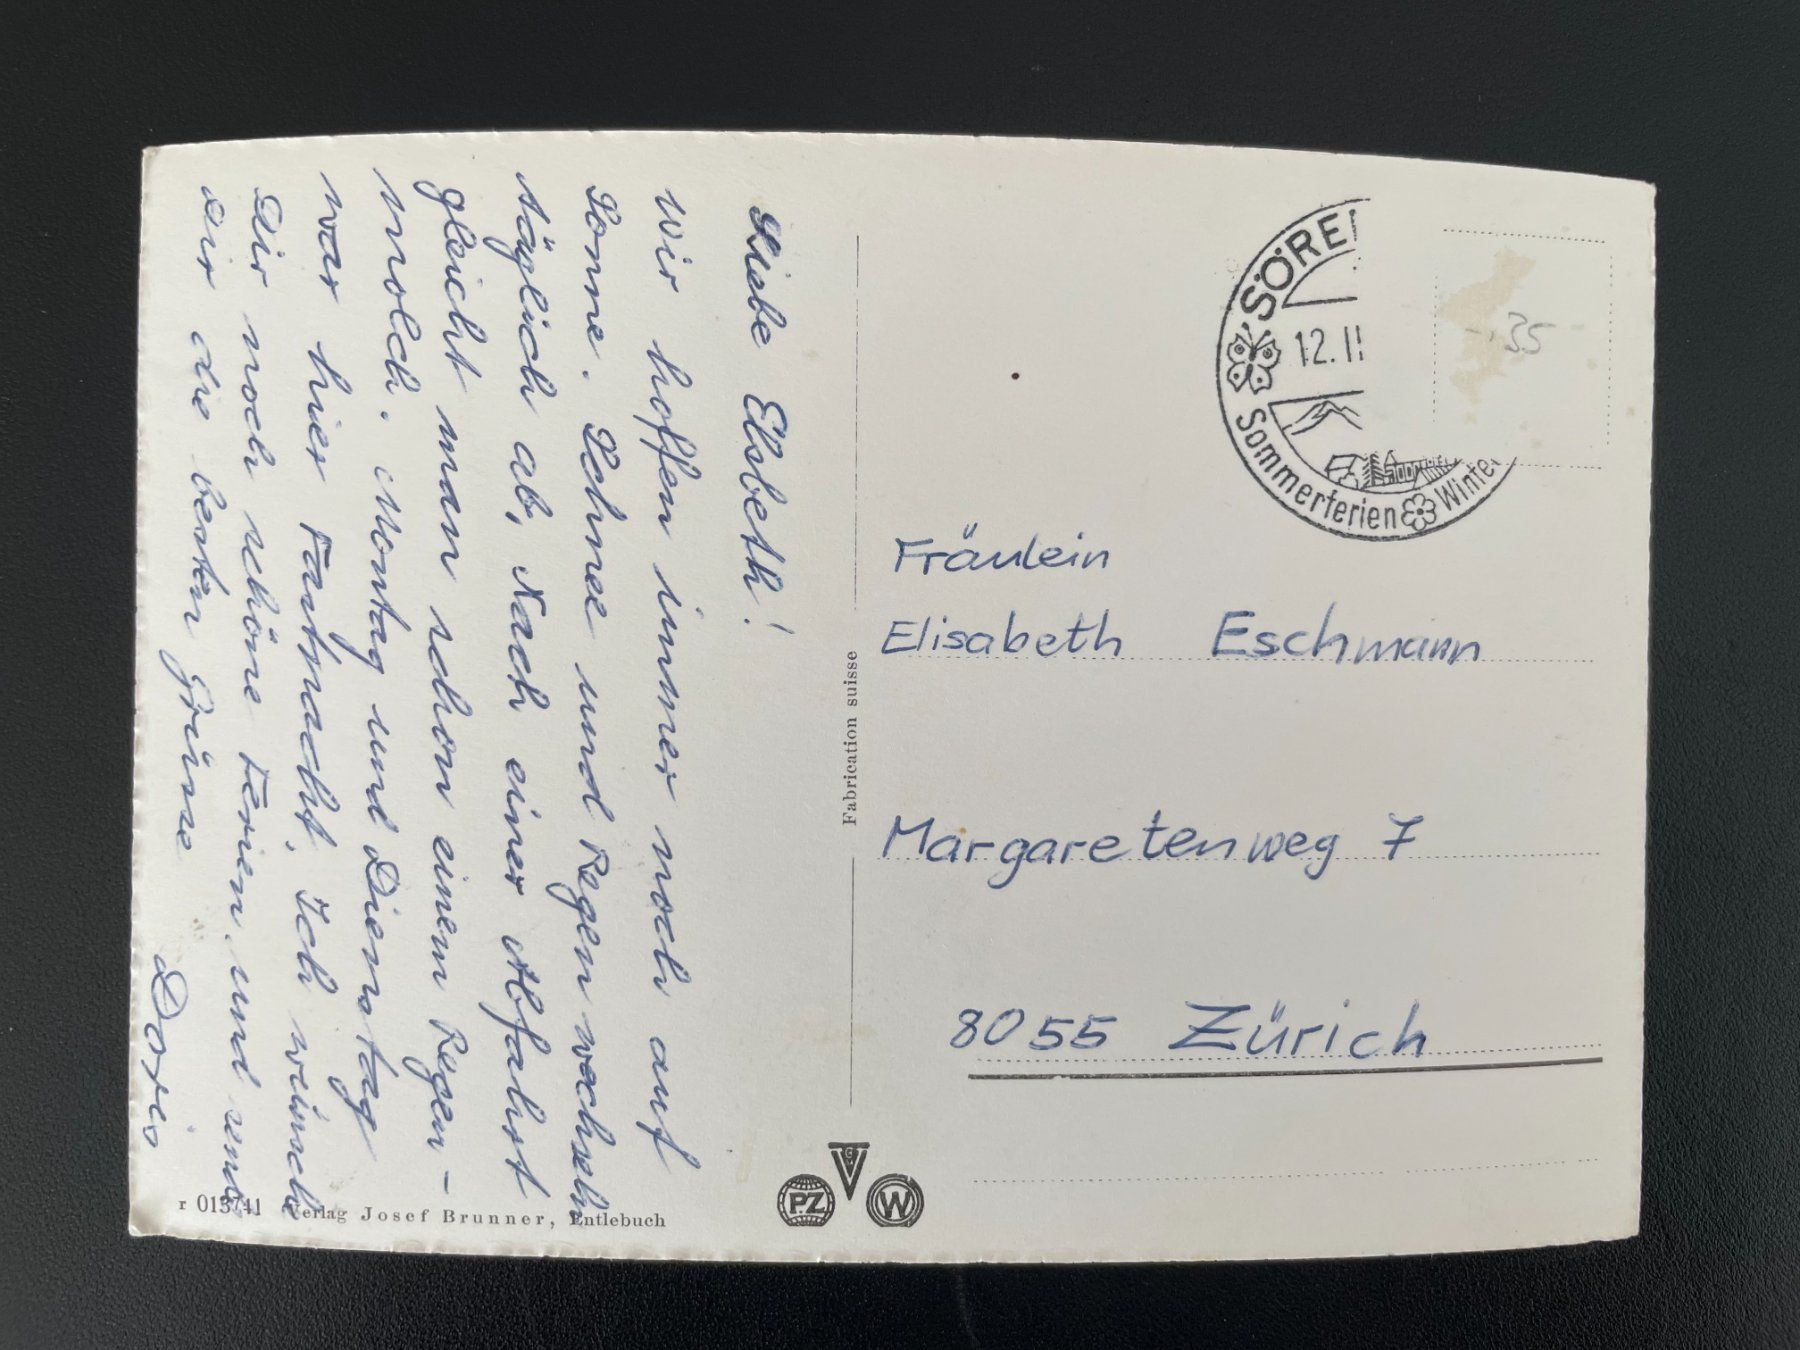 Liebe Elsbeth!
Wir hoffen immer noch auf
Sonne. Schnee und Regen wechseln
täglich ab. Nach einer Abfahrt
gleicht man schon einem Regen-
molch. Montag und Dienstag
war hier Fastnacht. Ich wünsche
Dir noch schöne Ferien und sende
Dir die besten Grüsse
Doris
r 013741 Verlag Josef Brunner, Entlebuch
Fabrication suisse
SÖRE
12. II
Sommerferien Winte
35
Fräulein
Elisabeth Eschmann
Margaretenweg 7
8055 Zürich
PZ
W